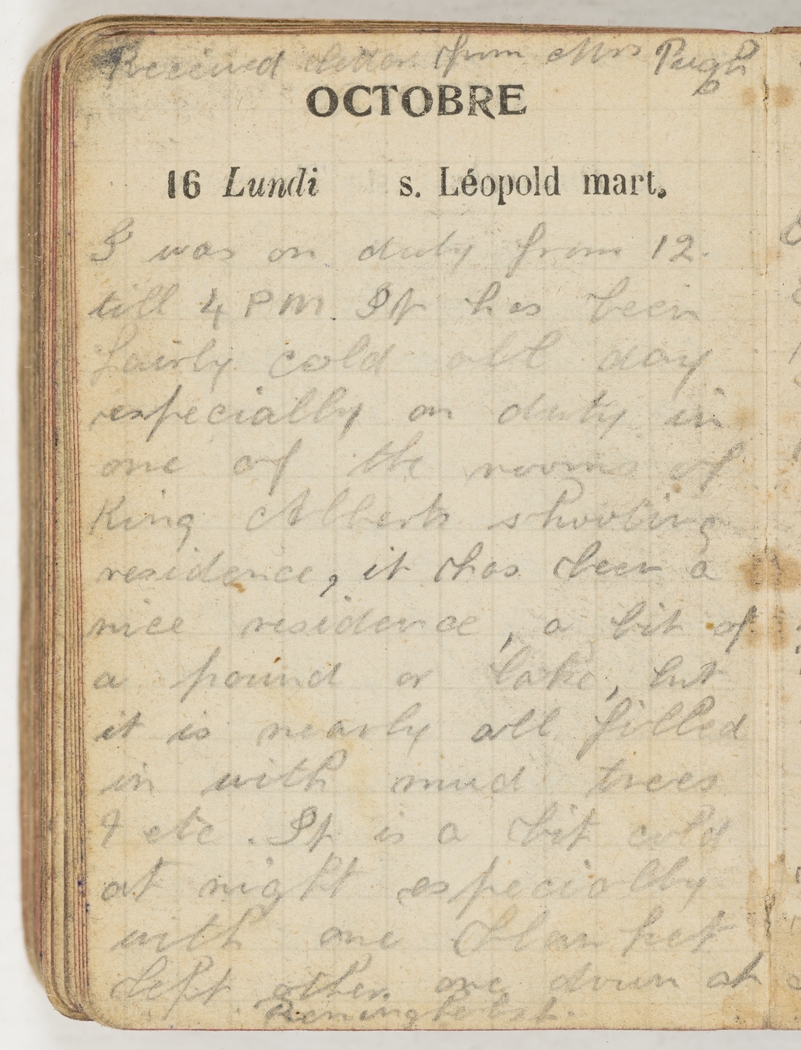 Received letter from Mrs Pugh
OCTOBRE
16 Lundi s. Léopold mart.
I was on duty from 12.
till 4 PM. It has been
fairly cold all day
especially on duty in
one of the rooms of
King Alberts shooting
residence, it has been a
nice residence, a bit of
a pound or lake, but
it is nearly all filled
in with mud trees
& etc. It is a bit cold
at night especially
with one blanket
left other one down at
Reninghelst.